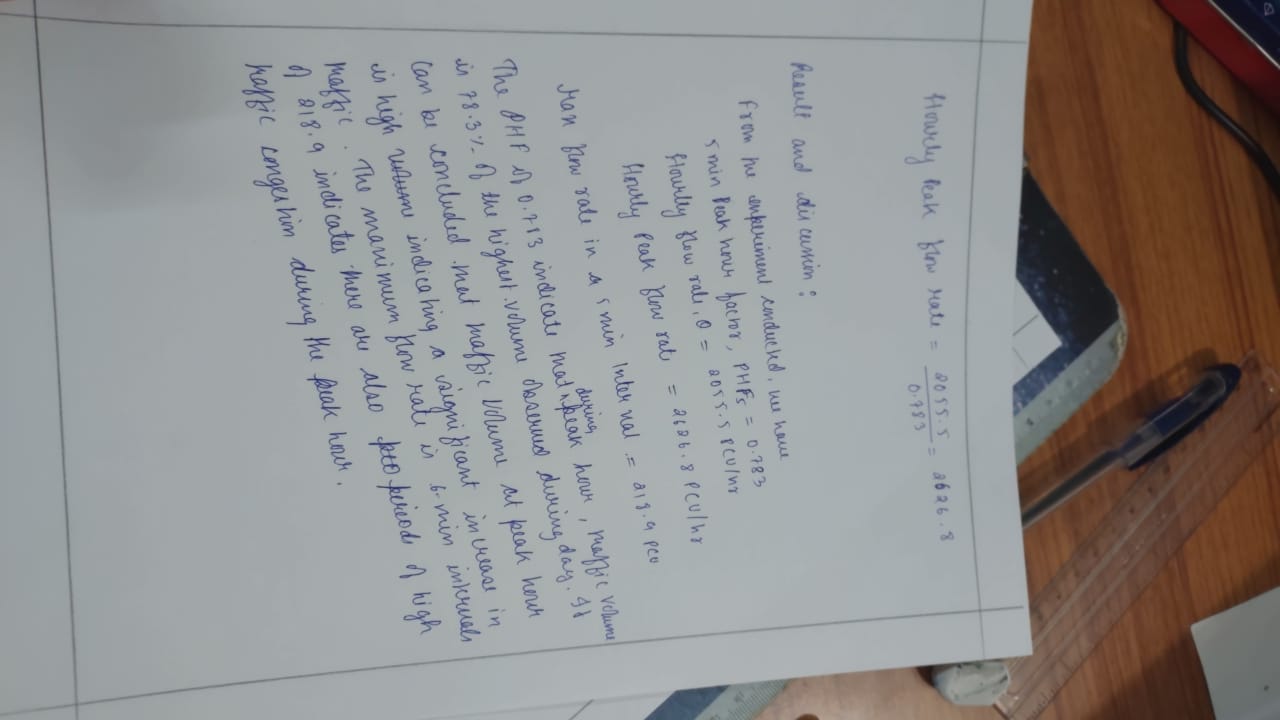 Hourly Peak flow rate = 2055.5 / 0.783 = 2626.8
Result and discussion :
From the experiment conducted, we have
5 min Peak hour factor, PHF5 = 0.783
Hourlly flow rate, Q = 2055.5 PCU/hr
Hourly Peak flow rate = 2626.8 PCU/hr
Max flow rate in a 5 min Interval = 218.9 PCU
The PHF of 0.783 indicate that during peak hour, traffic volume
is 78.3% of the highest volume observed during day. It
can be concluded that traffic volume at peak hour
is high volume indicating a significant increase in
traffic. The maximum flow rate is 6-min intervals
of 218.9 indicates there are also periods of high
traffic congestion during the peak hour.